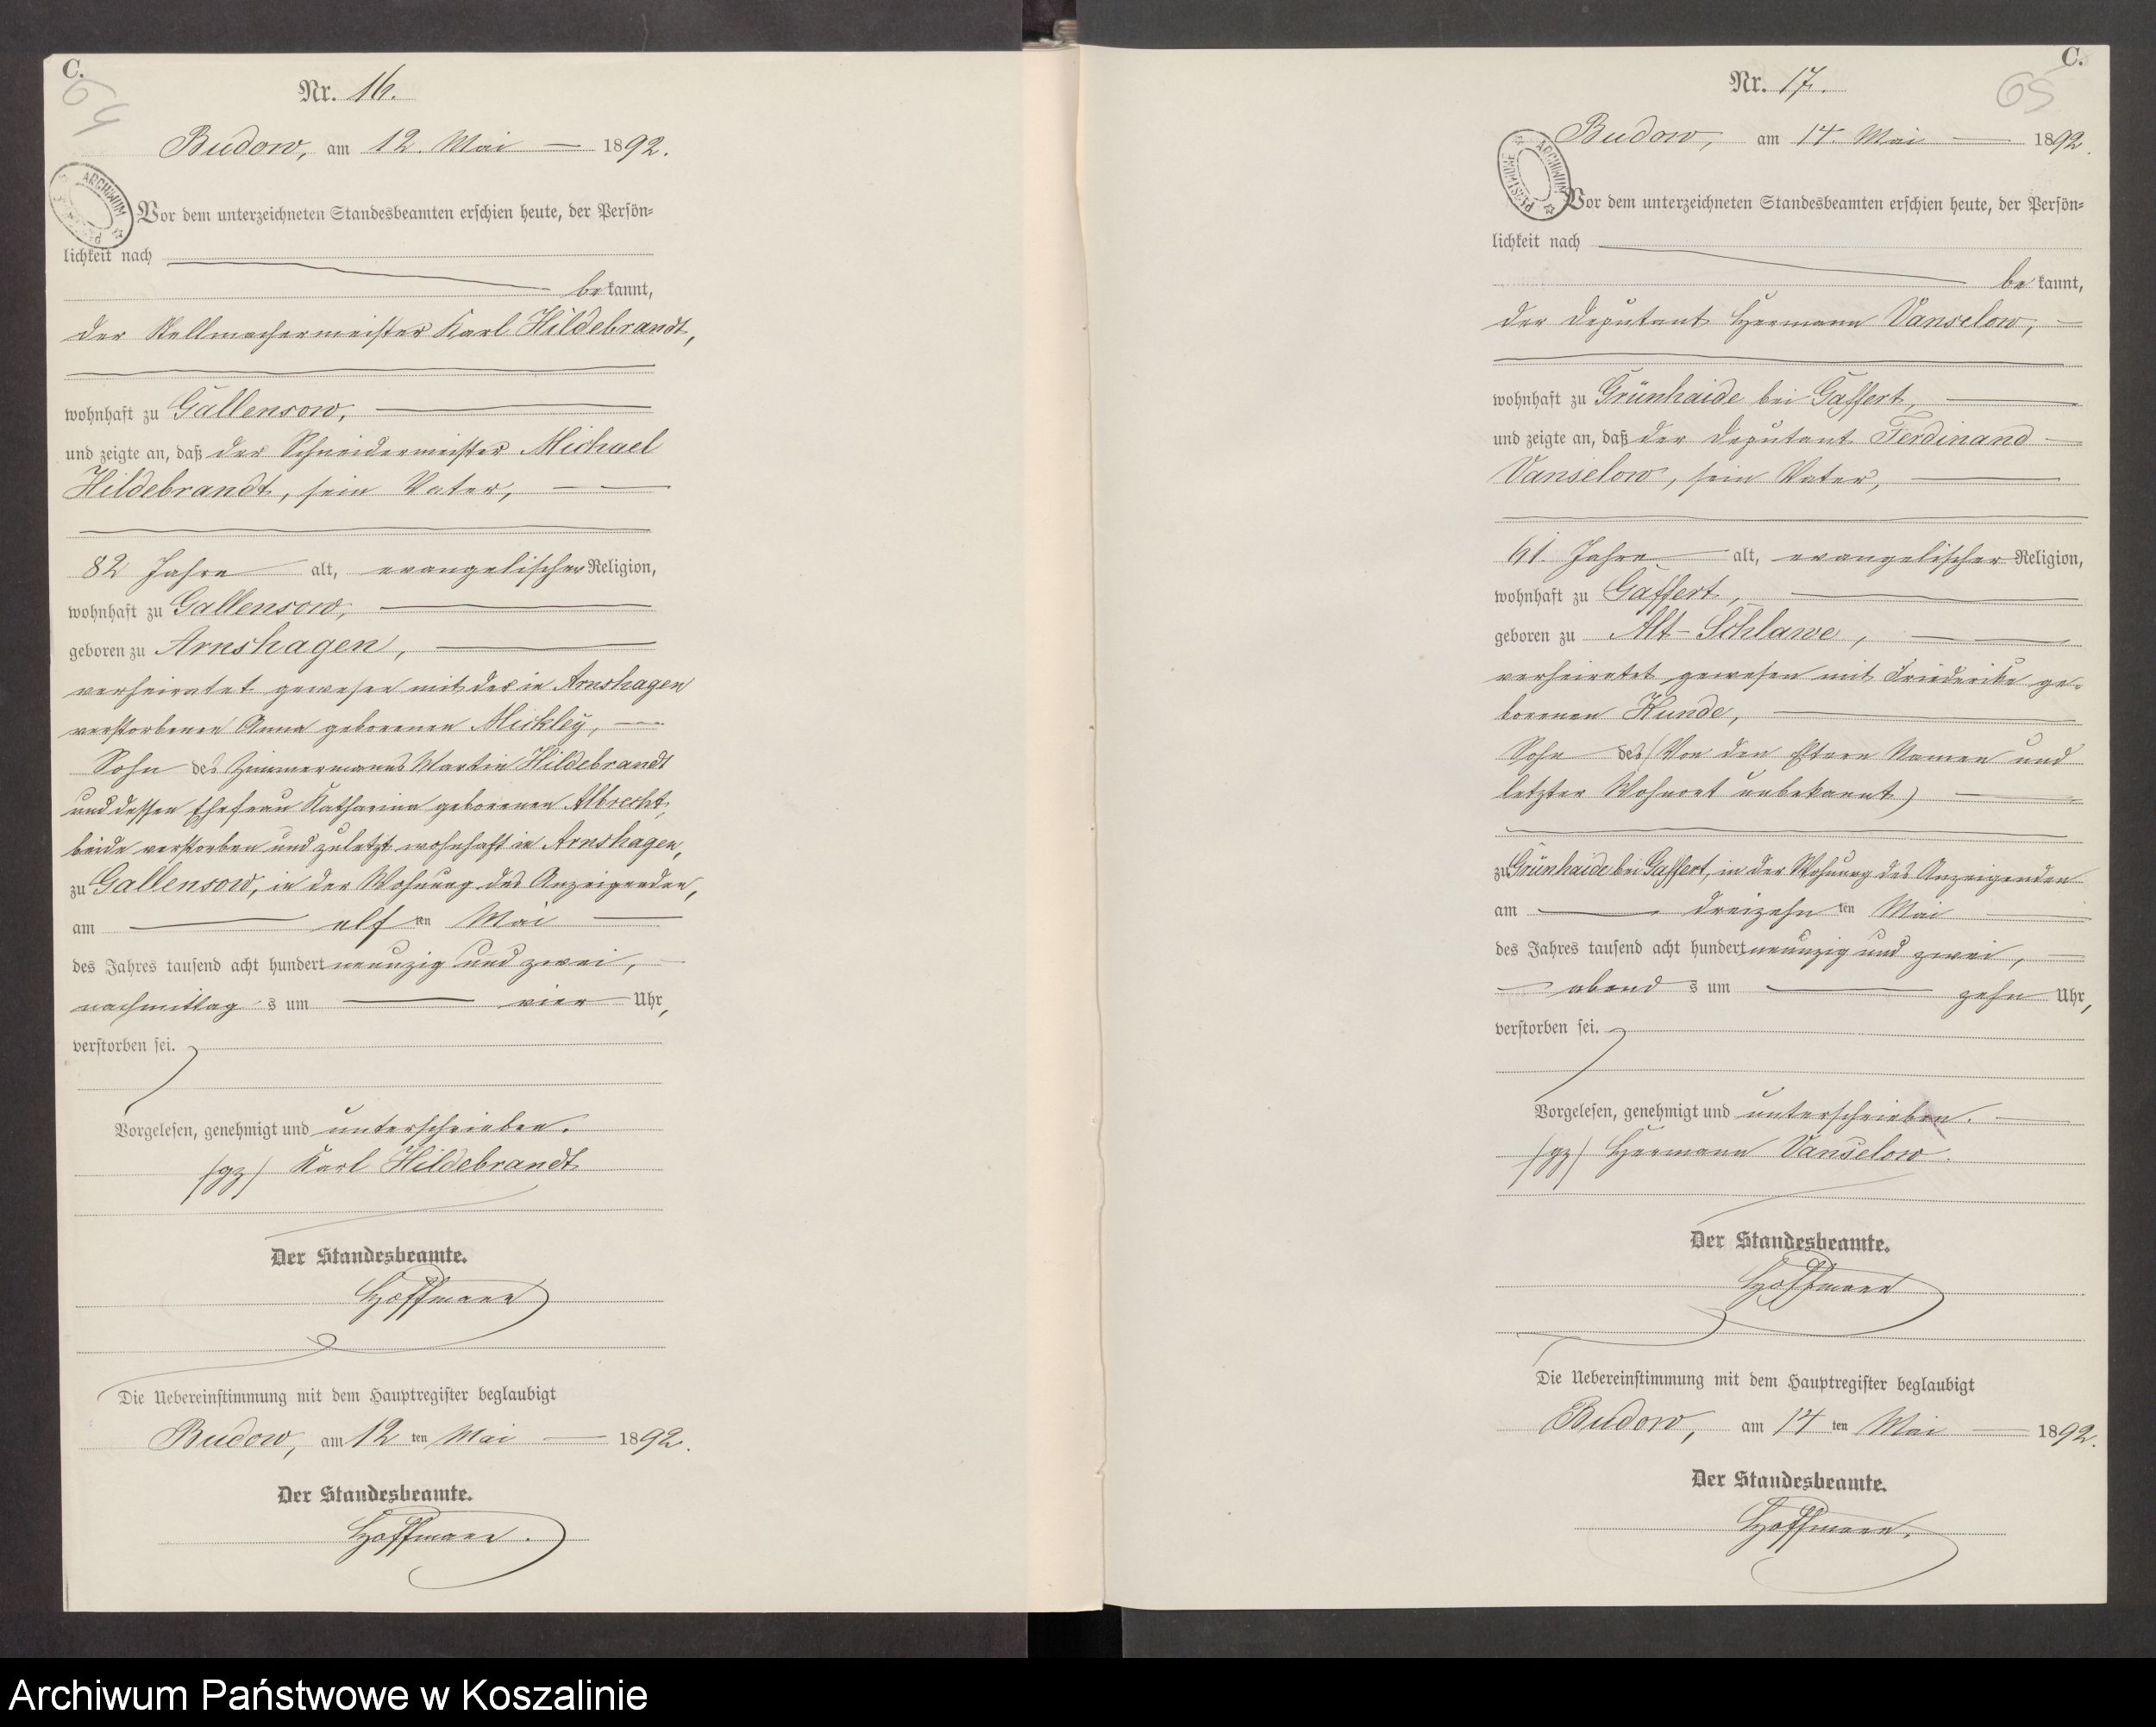 C.
64
Nr. 16.
Budow, am 12. Mai 1892.
ARCHIWUM
Vor dem unterzeichneten Standesbeamten erschien heute, der Persön=
lichkeit nach
bekannt,
der Stellmachermeister Karl Hildebrandt,
wohnhaft zu Gallensow,
und zeigte an, daß der Schneidermeister Michael
Hildebrandt, sein Vater,
82 Jahre alt, evangelischer Religion,
wohnhaft zu Gallensow,
geboren zu Arnshagen,
verheiratet gewesen mit der in Arnshagen
verstorbenen Anna geborenen Mickley,
Sohn des Zimmermanns Martin Hildebrandt
und dessen Ehefrau Katharina geborenen Albrecht,
beide verstorben und zuletzt wohnhaft in Arnshagen,
zu Gallensow, in der Wohnung des Anzeigenden,
am elften Mai
des Jahres tausend acht hundert neunzig und zwei,
nachmittags um vier Uhr,
verstorben sei.
Vorgelesen, genehmigt und unterschrieben.
/gz/ Karl Hildebrandt
Der Standesbeamte.
Hoffmann
Die Uebereinstimmung mit dem Hauptregister beglaubigt
Budow, am 12 ten Mai 1892.
Der Standesbeamte.
Hoffmann.
C.
65
Nr. 17.
Budow, am 14. Mai 1892.
ARCHIWUM PAŃSTWOWE
Vor dem unterzeichneten Standesbeamten erschien heute, der Persön=
lichkeit nach
bekannt,
der Deputant Hermann Vanselow,
wohnhaft zu Grünhaide bei Gaffert,
und zeigte an, daß der Deputant Ferdinand
Vanselow, sein Vater,
61 Jahre alt, evangelischer Religion,
wohnhaft zu Gaffert,
geboren zu Alt-Schlawe,
verheiratet gewesen mit Friederike ge-
borenen Kunde,
Sohn des (Von den Eltern Namen und
letzter Wohnort unbekannt)
zu Grünhaide bei Gaffert, in der Wohnung des Anzeigenden
am dreizehnten Mai
des Jahres tausend acht hundert neunzig und zwei,
abends um zehn Uhr,
verstorben sei.
Vorgelesen, genehmigt und unterschrieben.
/gz/ Hermann Vanselow.
Der Standesbeamte.
Hoffmann
Die Uebereinstimmung mit dem Hauptregister beglaubigt
Budow, am 14 ten Mai 1892.
Der Standesbeamte.
Hoffmann.
Archiwum Państwowe w Koszalinie